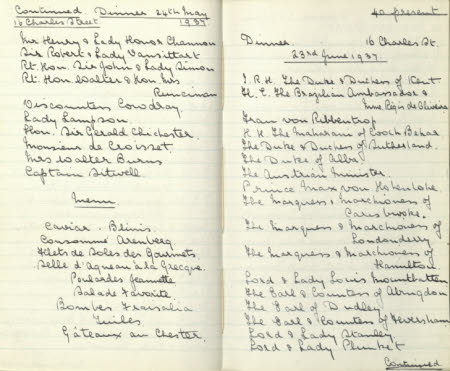 Continued. Dinner 24th May
16 Charles Street 1937
Mr Henry & Lady Honor Channon
Sir Robert & Lady Vansittart
Rt. Hon. Sir John & Lady Simon
Rt. Hon Walter & Hon Mrs
Runciman
Viscountess Cowdray.
Lady Lampson.
Hon. Sir Gerald Chichester.
Monsieur de Croisset.
Mrs Walter Burns
Captain Sitwell
Menu.
Caviar. Blinis.
Consommé Arenberg
Filets de Soles des Gourmets.
Selle d'Agneau à la Grecque.
Poulardes Jeannette
Salade Favorite.
Bombes
Tuiles
Gâteaux au Chester.
40 present
Dinner. 16 Charles St.
23rd June 1937.
T.R.H. The Duke & Duchess of Kent
H.E. The Brazilian Ambassador &
Mme Régis de Oliveira
Frau von Ribbentrop
H H The Maharani of Cooch Behar
The Duke & Duchess of Sutherland.
The Duke of Alba
The Austrian Minister.
Prince Max von Hohenlohe.
The Marquess & Marchioness of
Carisbrooke.
The Marquess & Marchioness of
Londonderry
The Marquess & Marchioness of
Hamilton.
Lord & Lady Louis Mountbatten
The Earl & Countess of Abingdon
The Earl of Dudley
The Earl & Countess of Feversham
Lord & Lady Stanley
Lord & Lady Plunket
Continued